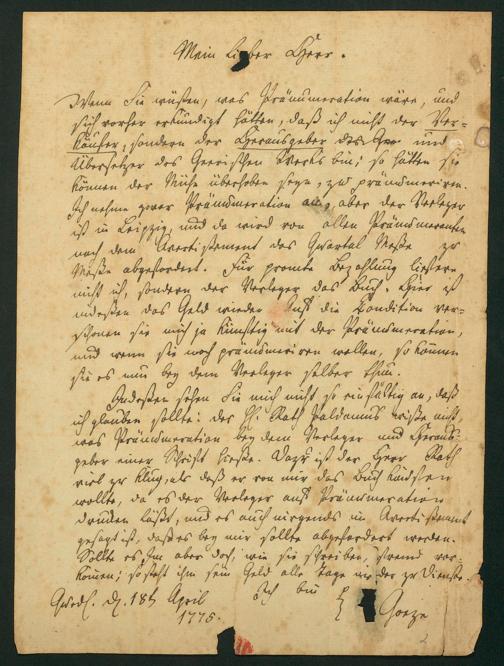 Mein lieber Herr.
Wenn Sie wüßten, was Pränumeration wäre, und
sich vorher erkundigt hätten, daß ich nicht der Ver-
käufer, sondern der Herausgeber des Gee und
Übersetzer des Geerischen Werks bin; so hätten sie
können der Mühe überhoben seyn, zu pränumeriren.
Ich nehme zwar Pränumeration an, aber der Verleger
ist in Leipzig, und da wird von allen Pränumeranten
nach dem Avertissement das Quartal Messe zu
Messe abgefordert. Für promte Bezahlung liefere
nicht ich, sondern der Verleger das Buch. Hier ist
indessen das Geld wieder. Auf die Kondition ver-
schonen sie mich ja künftig mit der Pränumeration,
und wenn sie noch pränumeriren wollen, so können
sie es nun bey dem Verleger selber thun.
Indessen sehen Sie mich nicht so einfältig an, daß
ich glauben sollte: der H. Rath Paldamus wisse nicht,
was Pränumeration bey dem Verleger und Heraus-
geber einer Schrift hieße. Dazu ist der Herr Rath
viel zu klug, als daß er von mir das Buch
wollte, da es der Verleger auf Pränumeration
drucken läßt, und es auch nirgends im Avertissement
gesagt ist, daß es bey mir sollte abgefordert werden.
Sollte es Ihm aber doch, wie sie schreiben, fremd vor-
kommen; so steht ihm sein Geld alle Tage wieder zu Dienste.
Ich bin
Quedl. d. 18t April
1775.
Goeze